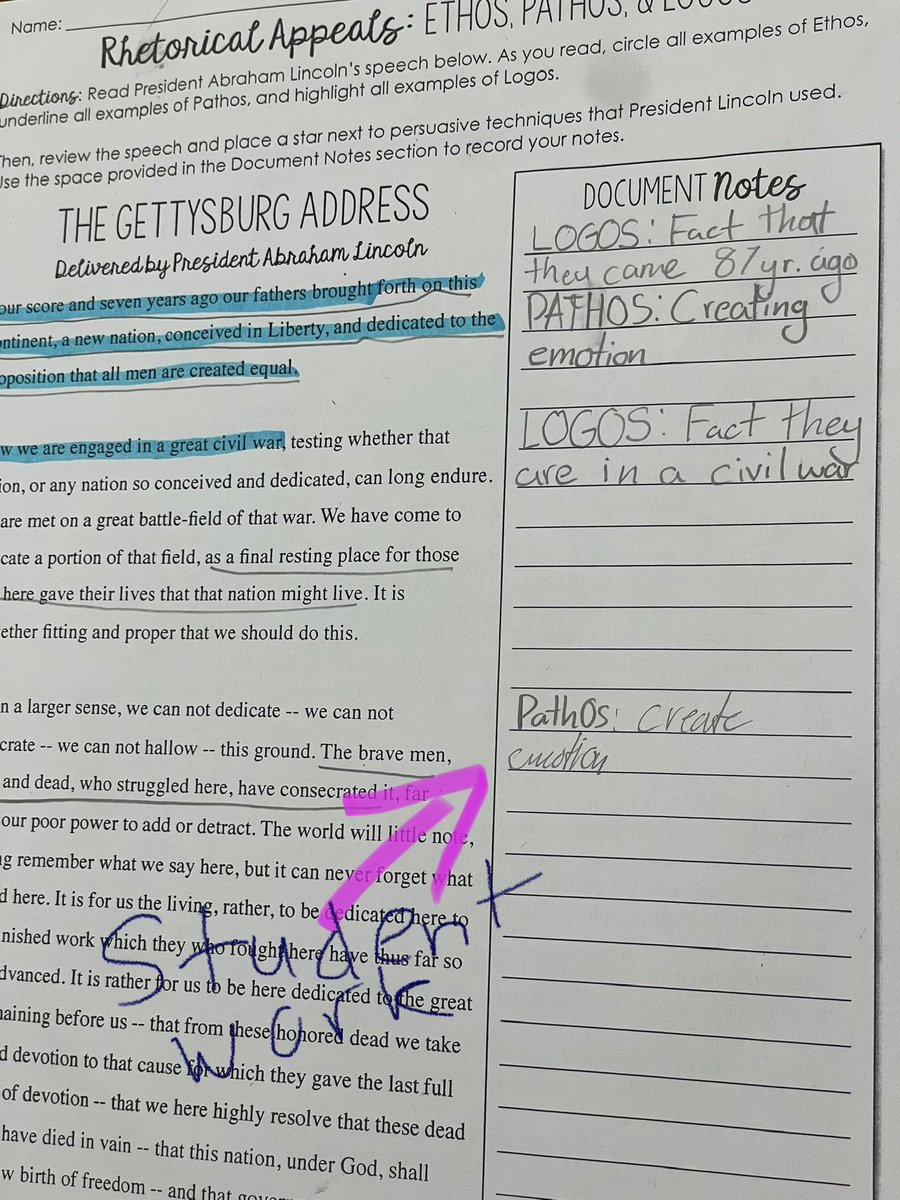 Name:
Rhetorical Appeals: ETHOS, PATHOS, & LOGOS
Directions: Read President Abraham Lincoln's speech below. As you read, circle all examples of Ethos,
underline all examples of Pathos, and highlight all examples of Logos.
Then, review the speech and place a star next to persuasive techniques that President Lincoln used.
Use the space provided in the Document Notes section to record your notes.
THE GETTYSBURG ADDRESS
Delivered by President Abraham Lincoln
our score and seven years ago our fathers brought forth on this
ontinent, a new nation, conceived in Liberty, and dedicated to the
oposition that all men are created equal.
w we are engaged in a great civil war, testing whether that
ion, or any nation so conceived and dedicated, can long endure.
are met on a great battle-field of that war. We have come to
cate a portion of that field, as a final resting place for those
here gave their lives that that nation might live. It is
ether fitting and proper that we should do this.
n a larger sense, we can not dedicate -- we can not
crate -- we can not hallow -- this ground. The brave men,
and dead, who struggled here, have consecrated it, far
our poor power to add or detract. The world will little note,
ng remember what we say here, but it can never forget what
d here. It is for us the living, rather, to be dedicated here to
nished work which they who fought here have thus far so
dvanced. It is rather for us to be here dedicated to the great
naining before us -- that from these honored dead we take
d devotion to that cause for which they gave the last full
of devotion -- that we here highly resolve that these dead
have died in vain -- that this nation, under God, shall
w birth of freedom -- and that gove
DOCUMENT Notes
LOGOS: Fact that
they came 87yr. ago
PATHOS: Creating
emotion
LOGOS: Fact they
are in a civil war
PathOs: create
emotion
Student
work